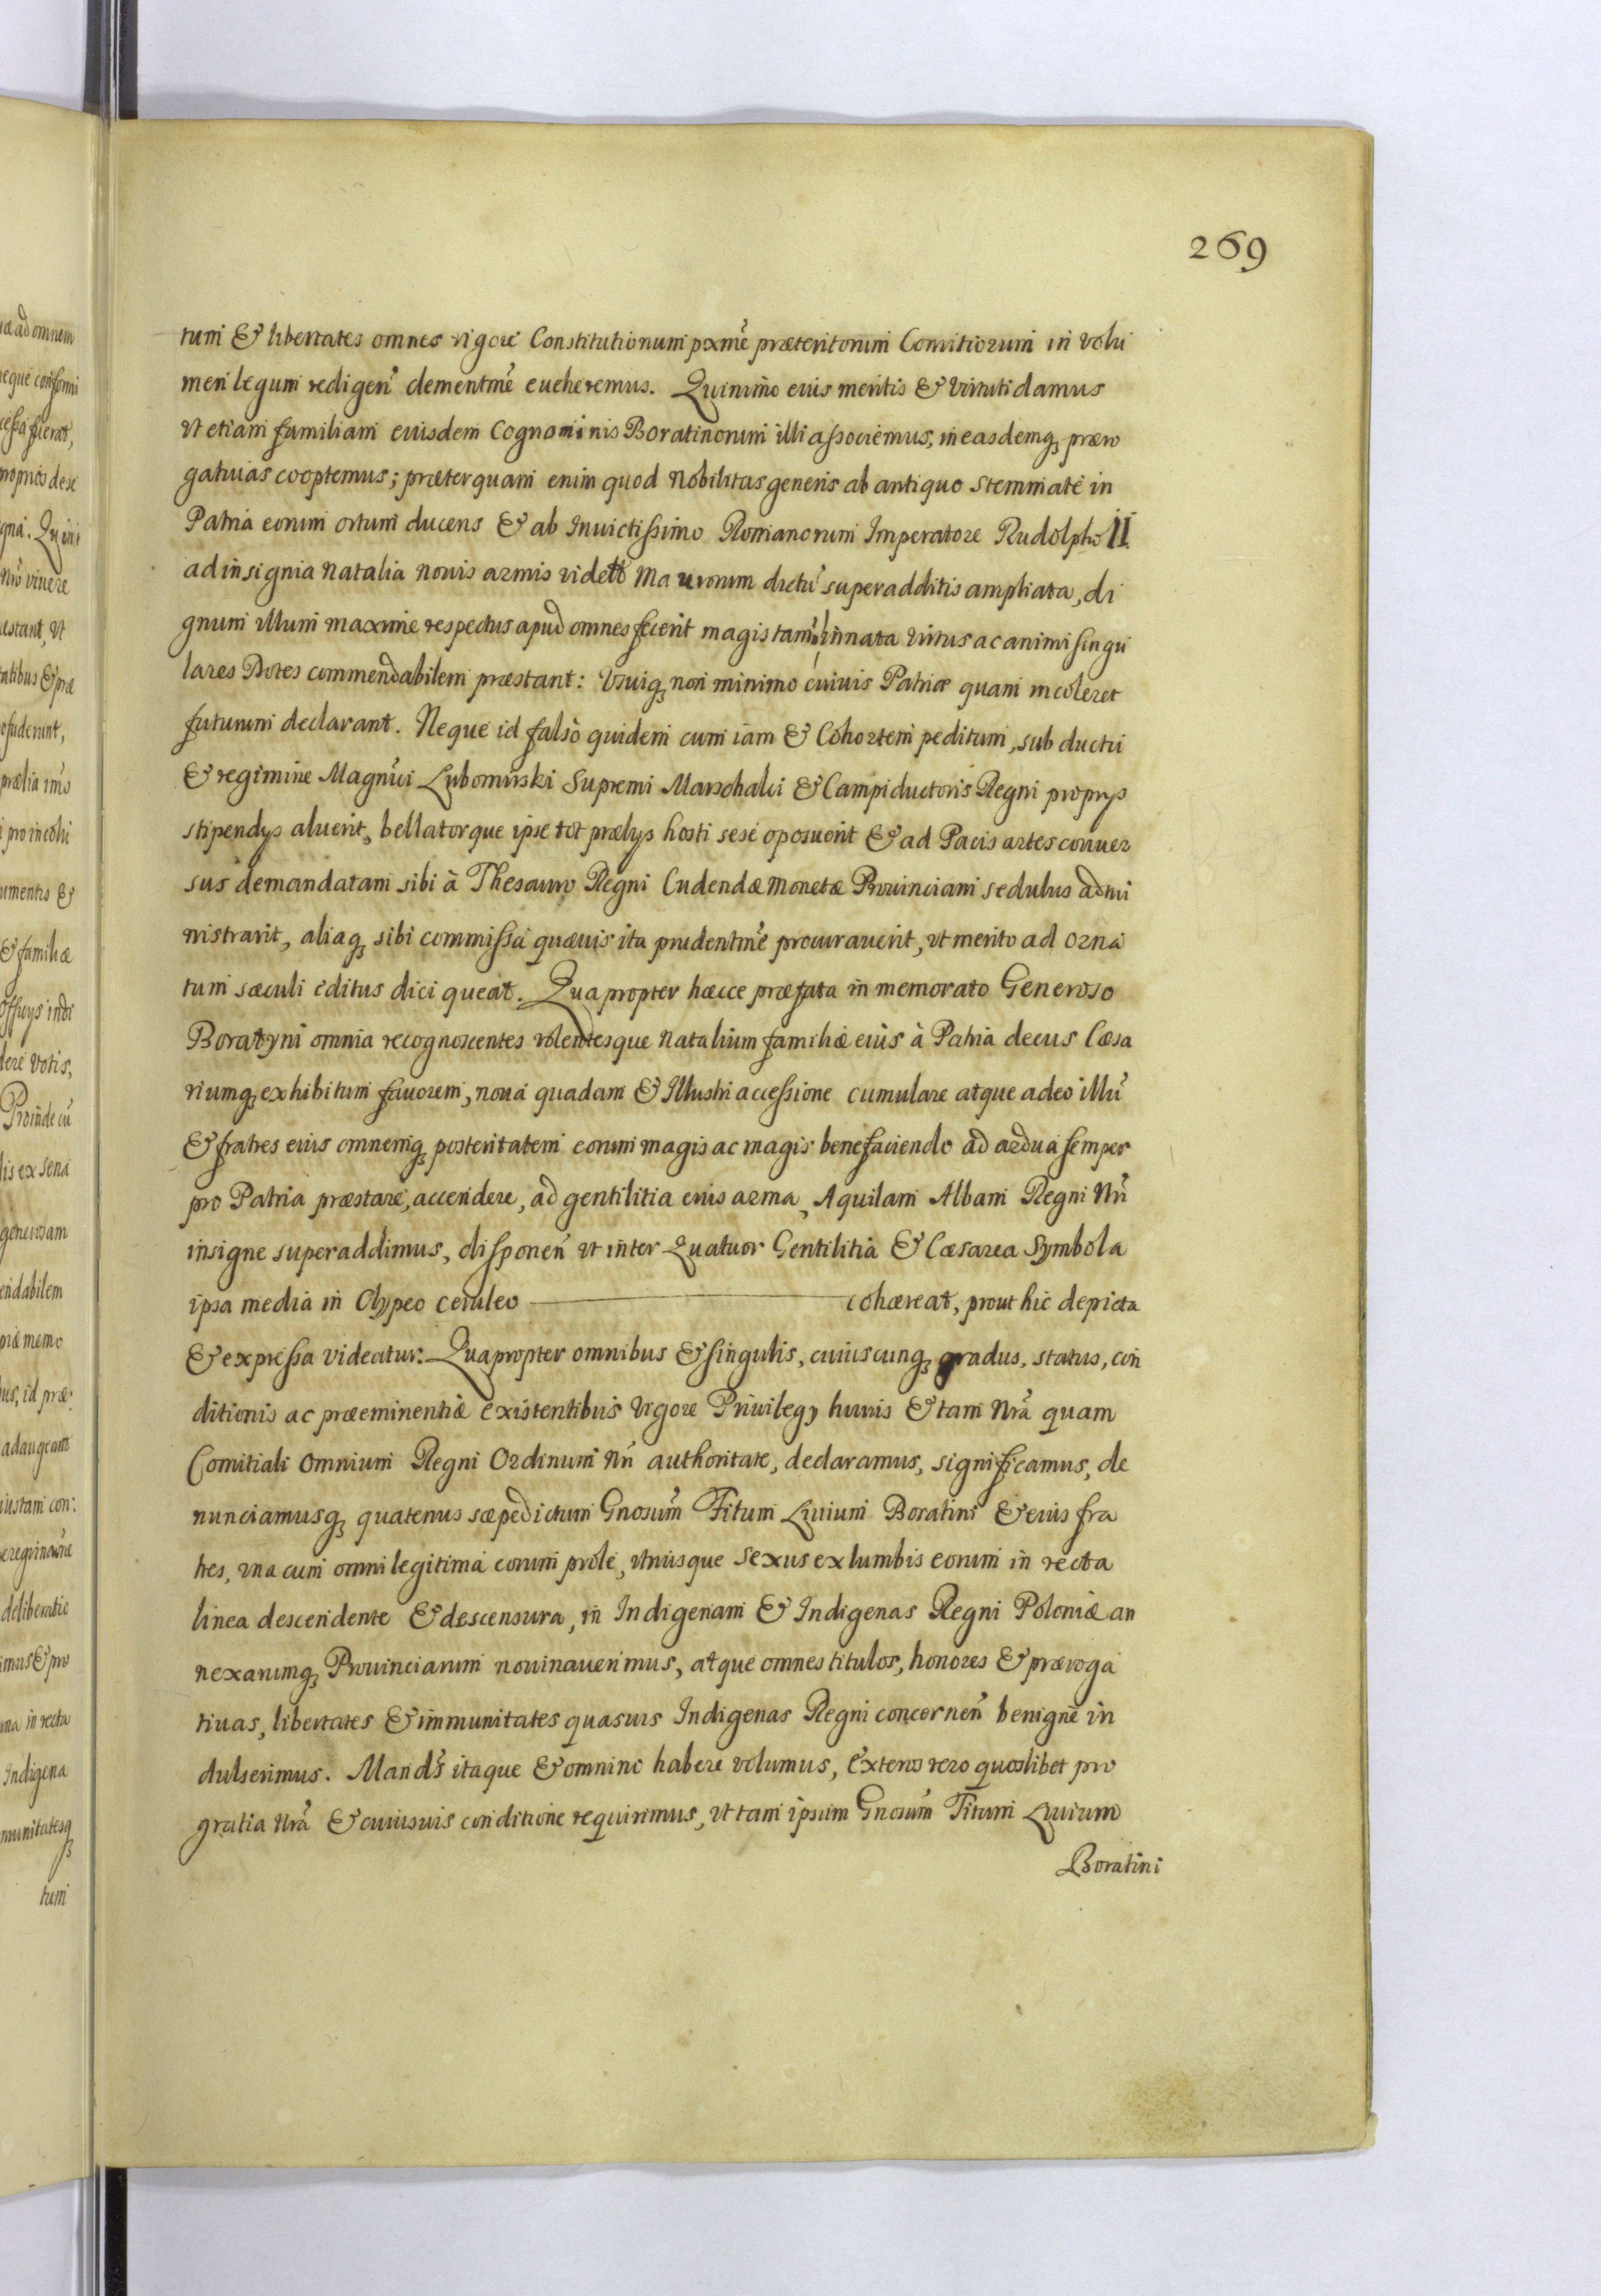 269
tum & libertates omnes vigore Constitutionum pxmê præteritorum Comitiorum in volu
men legum redigen̄ clementmê eueheremus. Quinimo eius meritis & virtuti damus
vt etiam familiam eiusdem Cognominis Boratinorum illi associemus, in easdemq₃ præro
gatiuas cooptemus; præterquam enim quod Nobilitas generis ab antiquo stemmate in
Patria eorum ortum ducens & ab Inuictissimo Romanorum Imperatore Rudolpho II.
ad insignia natalia nouis armis vidett Mauronum dictū superadditis ampliata, di
gnum illum maxime respectus apud omnes fecerit magis tam̄ innata virtus ac animi singu
lares Dotes commendabilem præstant: Vsuiq₃ non minimo cuiuis Patriæ quam incoleret
futurum declarant. Neque id falsò quidem cum iam & Cohortem peditum, sub ductu
& regimine Magn̄ci Lubomirski Supremi Marschalci & Campiductoris Regni proprys
stipendys aluerit, bellatorque ipse tot prælys hosti sese oposuerit & ad Pacis artes conuer
sus demandatam sibi à Thesauro Regni Cudendæ Monetæ Prouinciam sedulus admi
nistrarit, aliaq₃ sibi commissa quæuis ita prudentmê procurauerit, vt merito ad orna
tum sæculi editus dici queat. Quapropter hæcce præfata in memorato Generoso
Boratyni omnia recognoscentes volentesque Natalium familiæ eius à Patria decus Cæsa
riumq₃ exhibitum fauorem, noua quadam & Illustri accessione cumulare atque adeo illū
& fratres eius omnemq₃ posteritatem eorum magis ac magis benefaciendo ad ardua semper
pro Patria præstare, accendere, ad gentilitia eius arma, Aquilam Albam Regni Nrī
insigne superaddimus, disponen̄ vt inter Quatuor Gentilitia & Cæsarea Symbola
ipsa media in Clypeo ceruleo ——— cohæreat, prout hic depicta
& expressa videatur. Quapropter omnibus & singulis, cuiuscunq₃ gradus, status, con
ditionis ac præeminentiæ existentibus vigore Priuilegy huius & tam Nrā quam
Comitiali Omnium Regni Ordinum Nrī authoritate, declaramus, significamus, de
nunciamusq₃ quatenus sæpedictum Gnosum̄ Titum Liuium Boratini & eius fra
tres, vna cum omni legitima eorum prole, vtriusque sexus ex lumbis eorum in recta
linea descendente & descensura, in Indigenam & Indigenas Regni Poloniæ an
nexarumq₃ Prouinciarum nominauerimus, atque omnes titulos, honores & præroga
tiuas, libertates & immunitates quasuis Indigenas Regni concernen̄ benignè in
dulserimus. Mandˢ̄ itaque & omnino habere volumus, Exteros vero quoslibet pro
gratia Nrā & cuiusuis conditione requirimus, vt tam ipsum Gnosum̄ Titum Liuium
Boratini